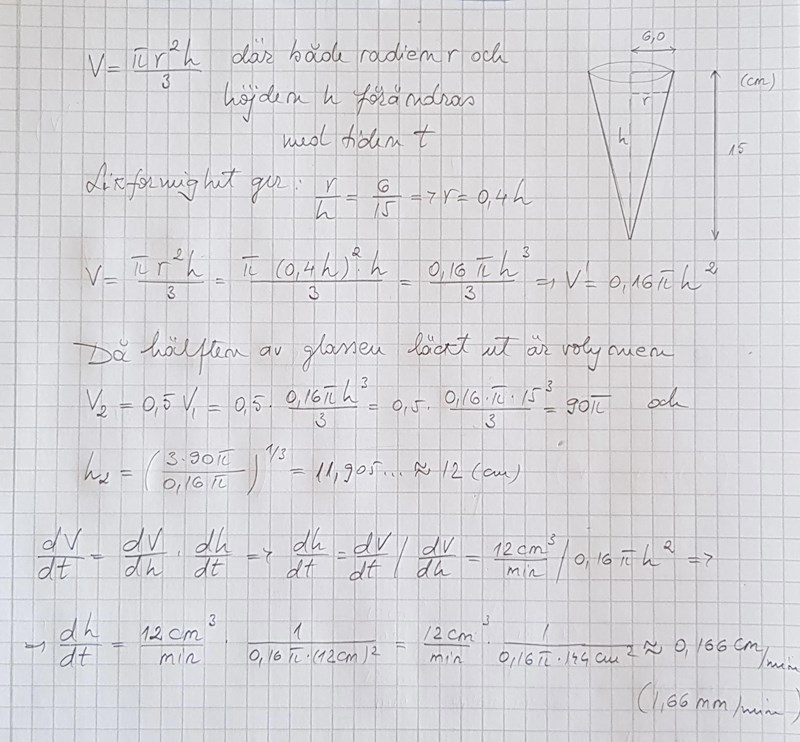 V = πr²h/3 där både radien r och
höjden h förändras
med tiden t
6,0
(cm)
r
h
15
Likformighet ger: r/h = 6/15 => r = 0,4h
V = πr²h/3 = π (0,4h)²·h/3 = 0,16πh³/3 => V' = 0,16πh²
Då hälften av glassen läckt ut är volymen
V₂ = 0,5 V₁ = 0,5 · 0,16πh³/3 = 0,5 · 0,16·π·15³/3 = 90π och
h₂ = (3·90π/0,16π)^1/3 = 11,905... ≈ 12 (cm)
dV/dt = dV/dh · dh/dt => dh/dt = dV/dt / dV/dh = 12 cm³/min / 0,16πh² =>
=> dh/dt = 12 cm³/min · 1/0,16π·(12cm)² = 12 cm³/min · 1/0,16π·144 cm² ≈ 0,166 cm/min
(1,66 mm/min)